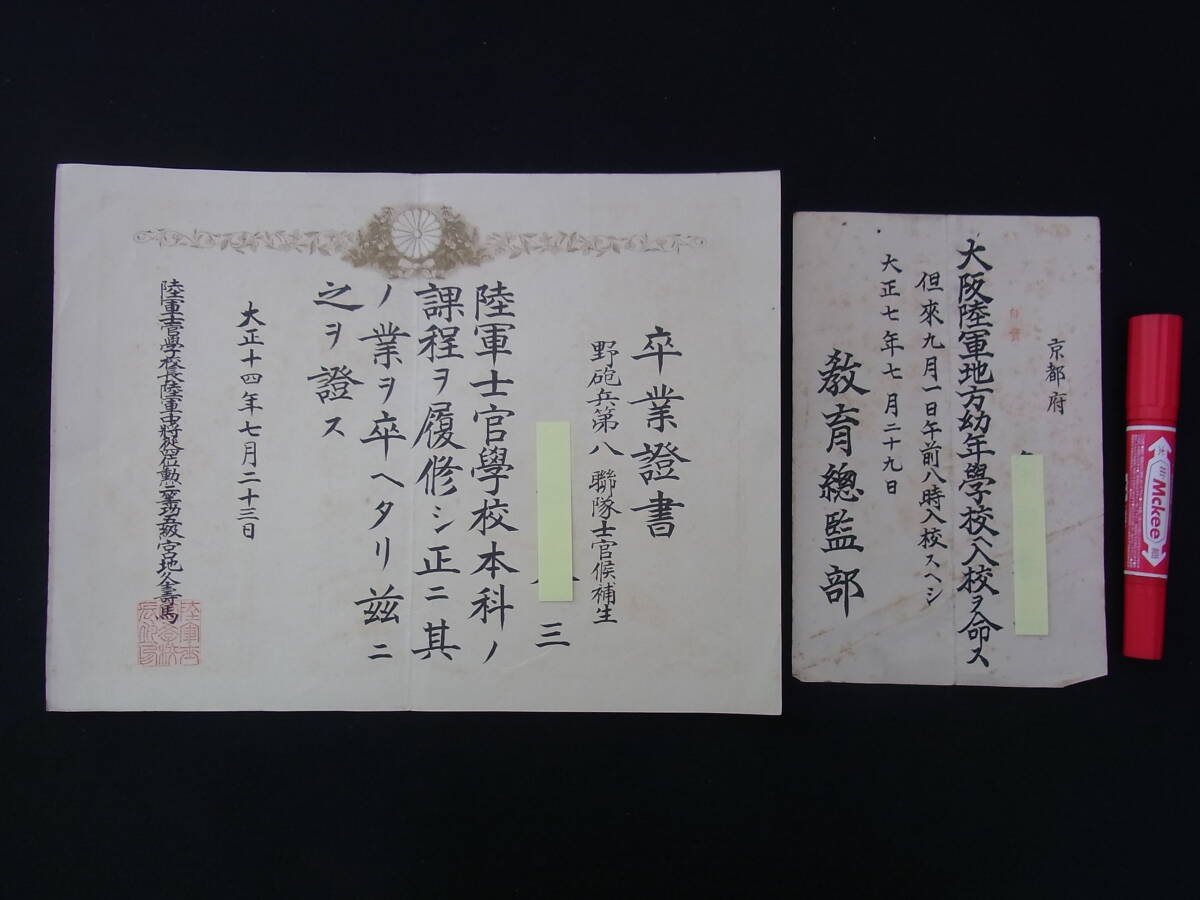 卒業證書
野砲兵第八聯隊士官候補生
三
陸軍士官學校本科ノ
課程ヲ履修シ正ニ其
ノ業ヲ卒ヘタリ茲ニ
之ヲ證ス
大正十四年七月二十三日
陸軍士官學校長陸軍中將從四位勳二等功五級宮地久壽馬
京都府
大阪陸軍地方幼年學校ヘ入校ヲ命ス
但來九月一日午前八時入校スヘシ
大正七年七月二十九日
教育總監部
Mckee